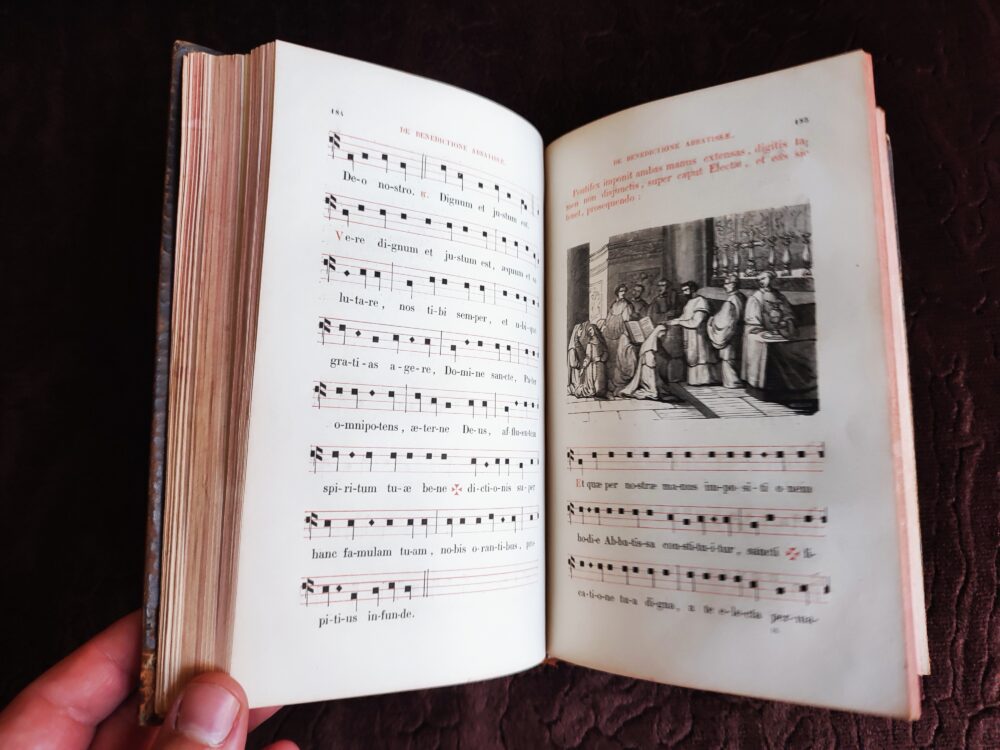 184
DE BENEDICTIONE ABBATISSÆ.
De-o no-stro. ℟. Dignum et ju-stum est.
Ve-re di-gnum et ju-stum est, æquum et sa
lu-ta-re, nos ti-bi sem-per, et u-bi-que
gra-ti-as a-ge-re, Do-mi-ne san-cte, Pa-ter
o-mnipo-tens, æ-ter-ne De-us, af-flu-en-tem
spi-ri-tum tu-æ be-ne ✠ di-cti-o-nis su-per
hanc fa-mulam tu-am, no-bis o-ran-ti-bus, pro-
pi-ti-us in-fun-de.
185
DE BENEDICTIONE ABBATISSÆ.
Pontifex imponit ambas manus extensas, digitis ta-
men non disjunctis, super caput Electæ, et eas sic
tenet, prosequendo:
Et quæ per no-stræ ma-nus im-po-si-ti-o-nem
ho-di-e Ab-ba-tis-sa con-sti-tu-i-tur, sancti ✠ fi-
ca-ti-o-ne tu-a di-gna, a te e-le-cta per-ma-